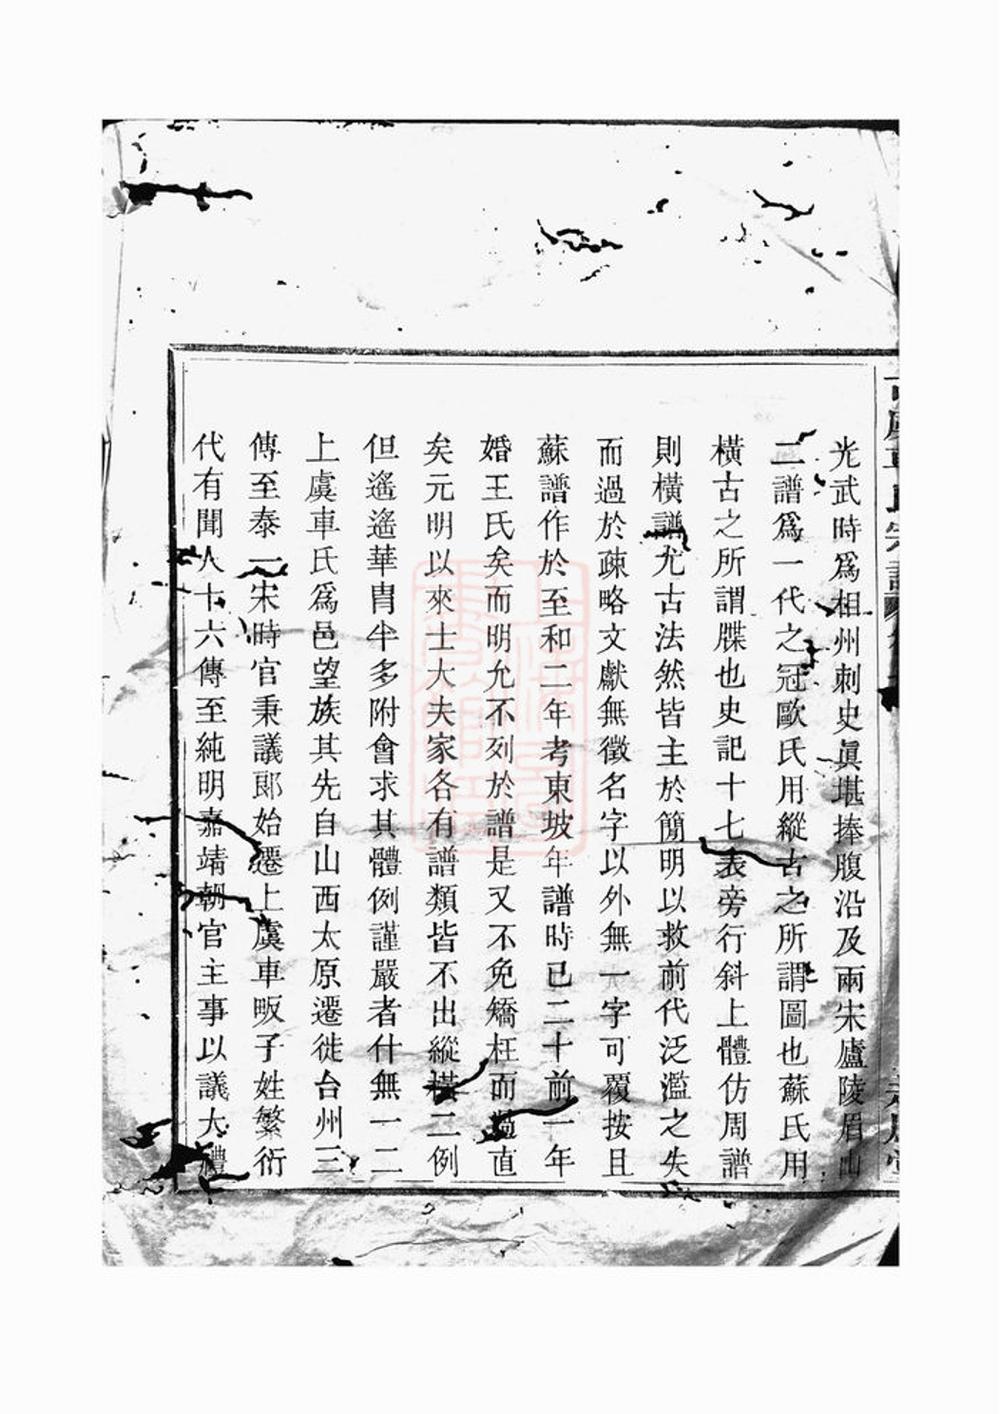 光武時爲相州刺史眞堪捧腹沿及兩宋廬陵眉山
二譜爲一代之冠歐氏用縱古之所謂圖也蘇氏用
橫古之所謂牒也史記十七表旁行斜上體仿周譜
則橫譜尤古法然皆主於簡明以救前代泛濫之失
而過於疎略文獻無徵名字以外無一字可覆按且
蘇譜作於至和二年考東坡年譜時已二十前一年
婚王氏矣而明允不列於譜是又不免矯枉而過直
矣元明以來士大夫家各有譜類皆不出縱橫二例
但遙遙華胄半多附會求其體例謹嚴者什無一二
上虞車氏爲邑望族其先自山西太原遷徙台州三
傳至泰一宋時官秉議郎始遷上虞車畈子姓繁衍
代有聞人十六傳至純明嘉靖朝官主事以議大禮